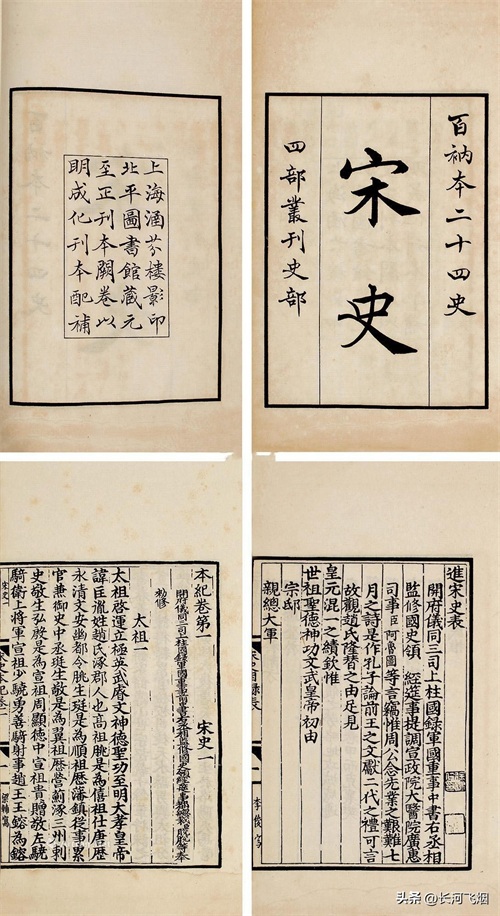 百衲本二十四史
宋史
四部叢刊史部
上海涵芬樓影印
北平圖書館藏元
至正刊本闕卷以
明成化刊本配補
進宋史表
開府儀同三司上柱國錄軍國重事中書右丞相
監修國史領 經筵事提調宣政院大醫院廣惠
司事臣阿魯圖等言竊惟周公念先業之艱難七
月之詩是作孔子論前王之文獻二代之禮可言
故觀趙氏隆替之由足見
皇元混一之績欽惟
世祖聖德神功文武皇帝初由
宗邸
親總大軍
本紀卷第一 宋史一
開府儀同三司上柱國錄軍國重事
勑修
太祖一
太祖啓運立極英武睿文神德聖功至明大孝皇帝
諱匡胤姓趙氏涿郡人也高祖朓是為僖祖仕唐歷
永清文安幽都令朓生珽是為順祖歷藩鎮從事累
官兼御史中丞珽生敬是為翼祖歷營薊涿三州刺
史敬生弘殷是為宣祖周顯德中宣祖貴贈敬左驍
騎衛上將軍宣祖少驍勇善騎射事趙王王鎔為鎔
头条 @长河飞烟